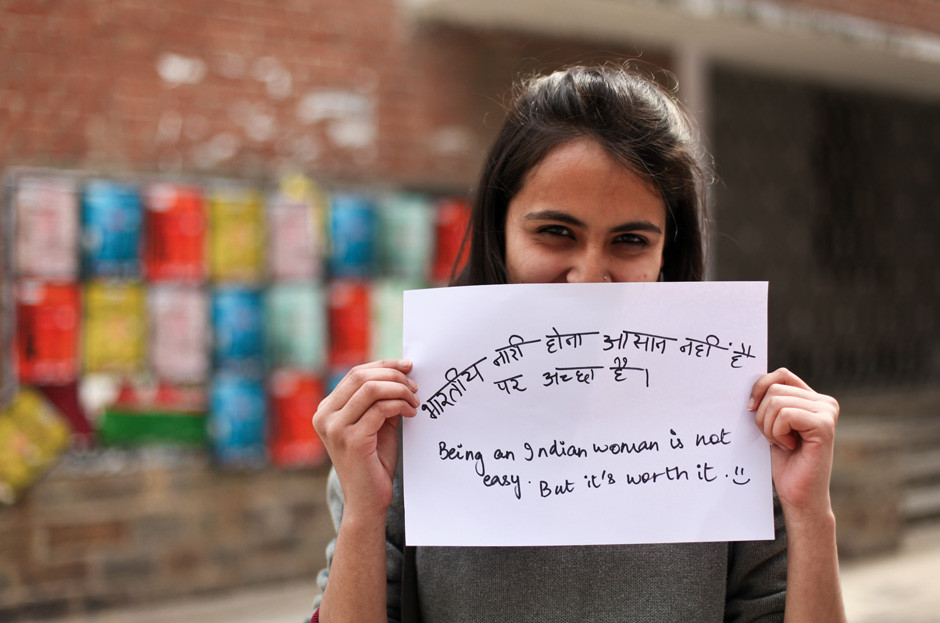 भारतीय नारी होना आसान नहीं है
पर अच्छा है।
Being an Indian woman is not
easy. But it's worth it. :)